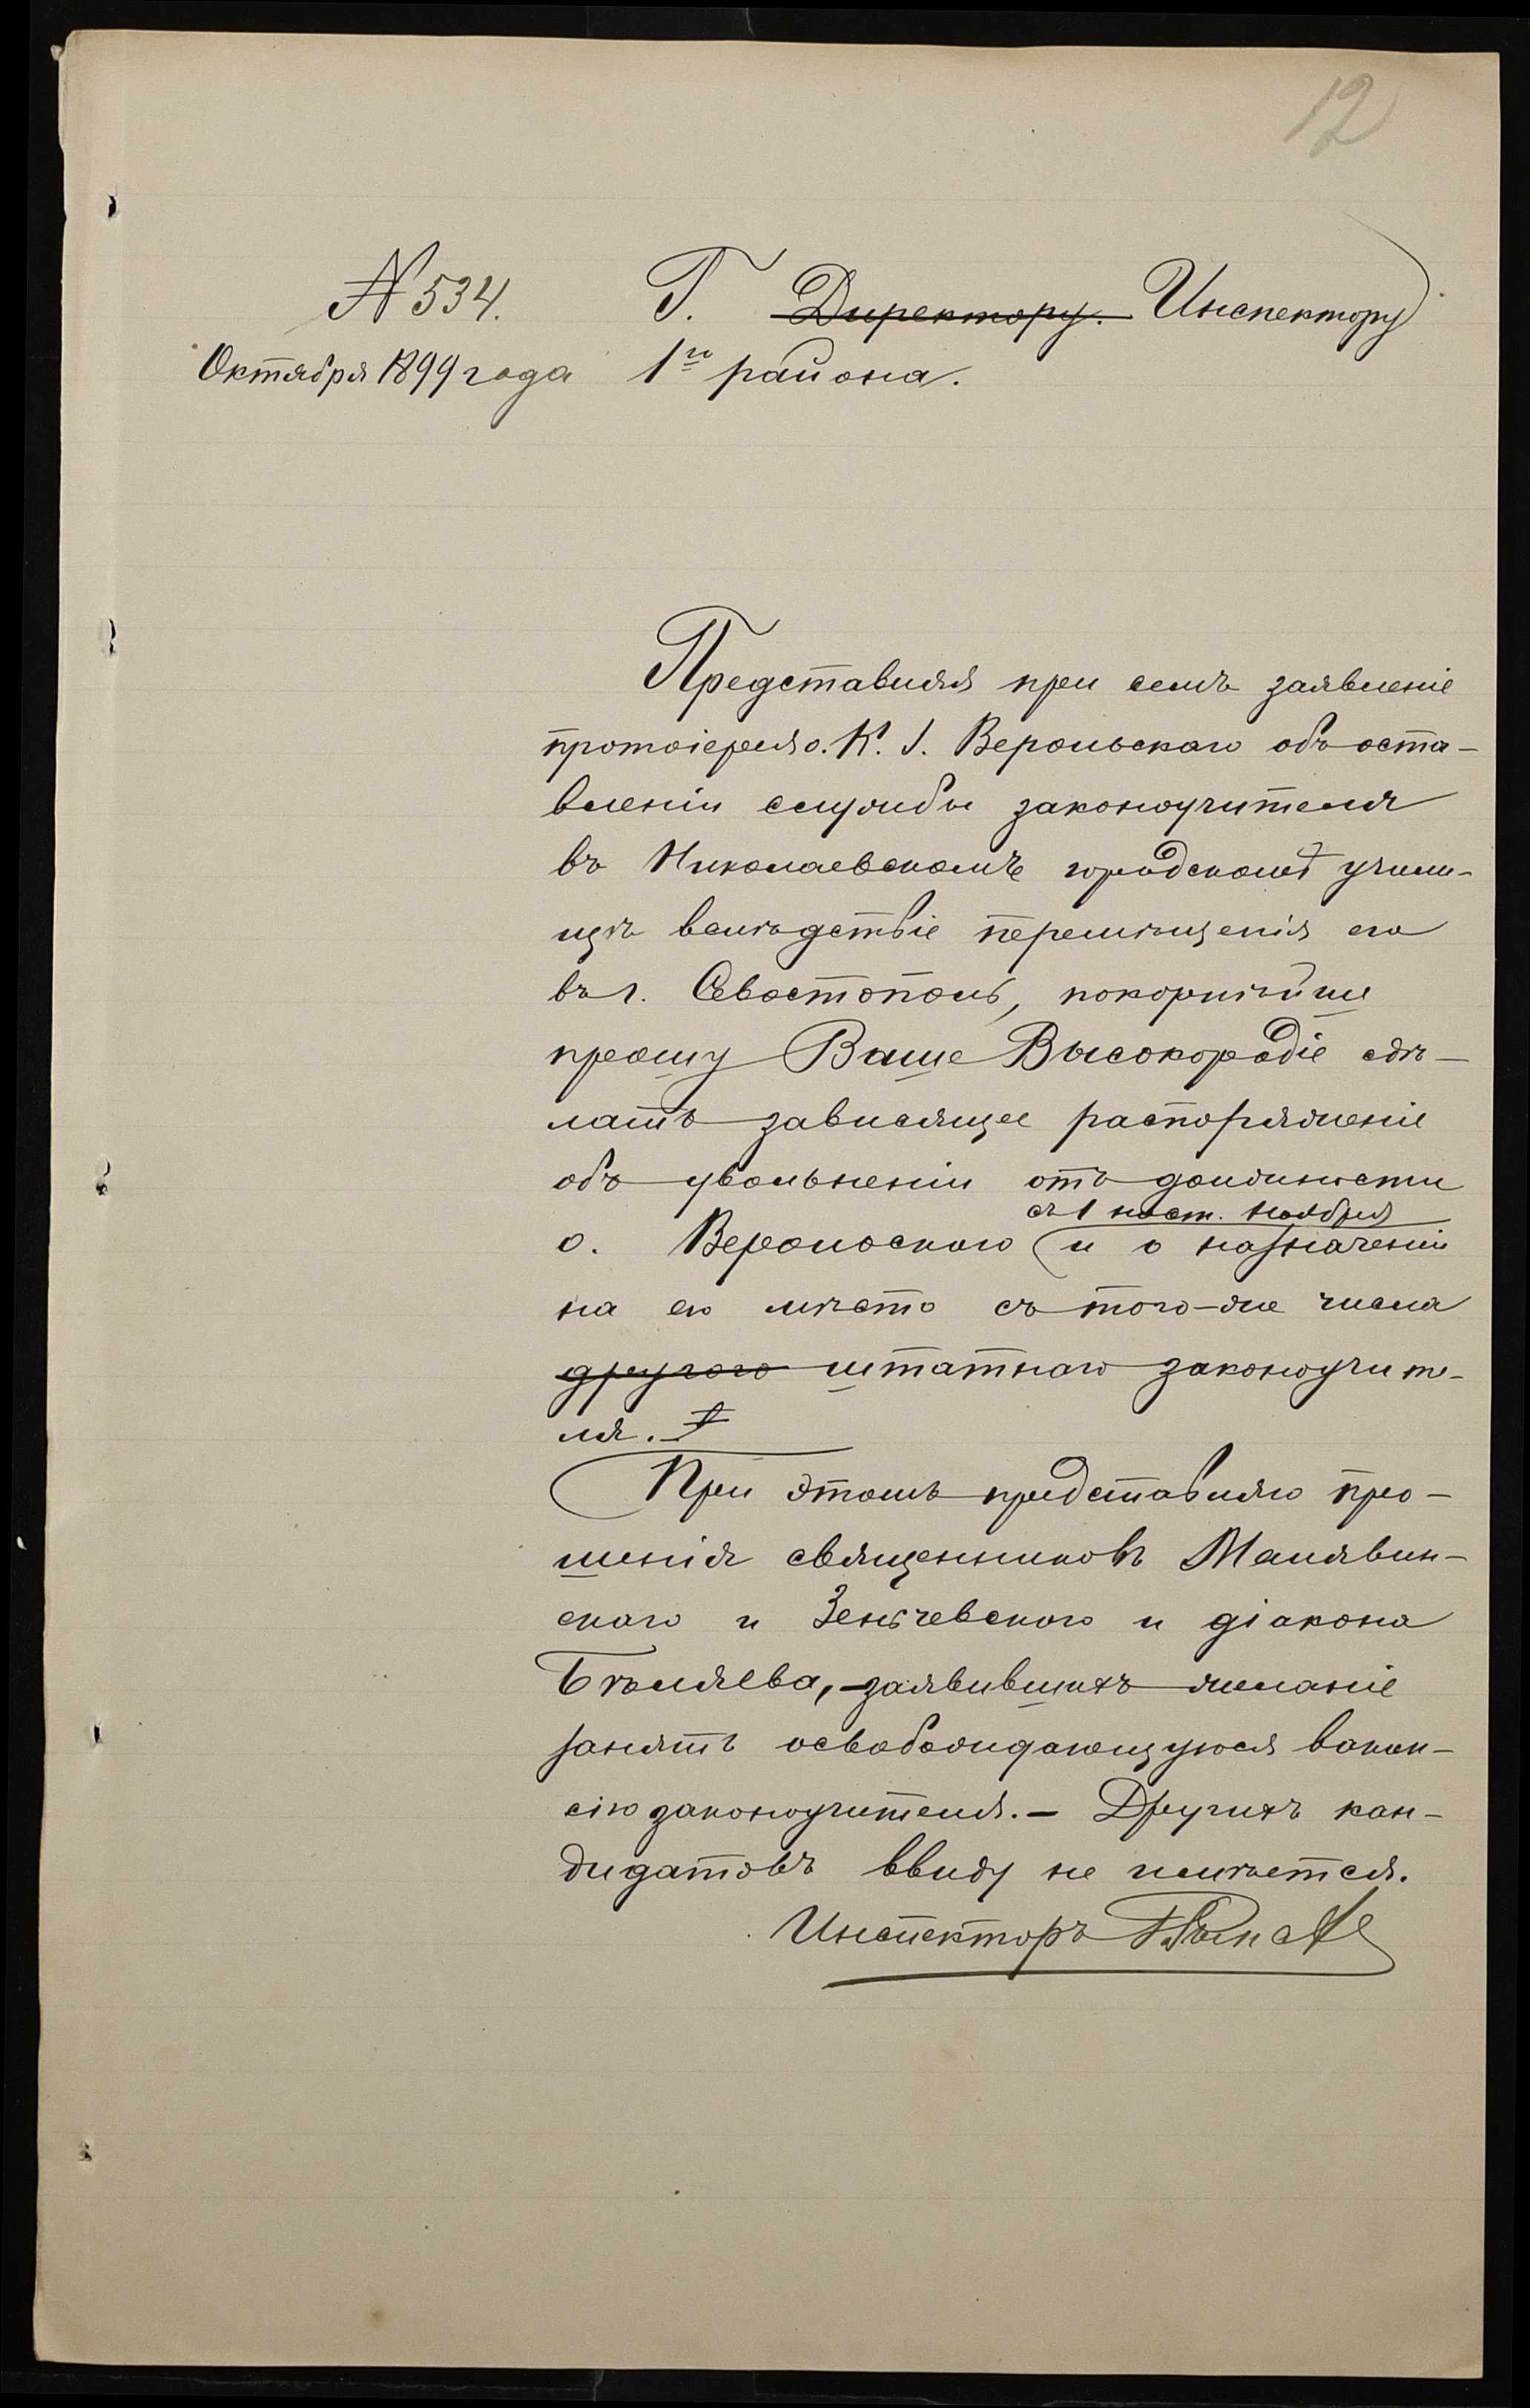 12
№ 534. Г. Директору. Инспектору
Октября 1899 года 1го района.
Представляя при семъ заявленіе
протоіерея о. К. І. Верольскаго объ оста-
вленіи службы законоучителя
въ Николаевскомъ городскомъ учили-
щѣ вслѣдствіе перемѣщенія его
въ г. Севастополь, покорнѣйше
прошу Ваше Высокородіе сдѣ-
лать зависящее распоряженіе
объ увольненіи отъ должности
съ 1 наст. Ноября
о. Верольскаго и о назначеніи
на его мѣсто съ того-же числа
другого штатнаго законоучите-
ля.
При этомъ представляю про-
шенія священниковъ Малявин-
скаго и Зеньчевского и діакона
Бѣляева, заявившихъ желаніе
занять освобождающуюся вакан-
сію законоучителя. - Другихъ кан-
дидатовъ ввиду не имѣется.
Инспекторъ